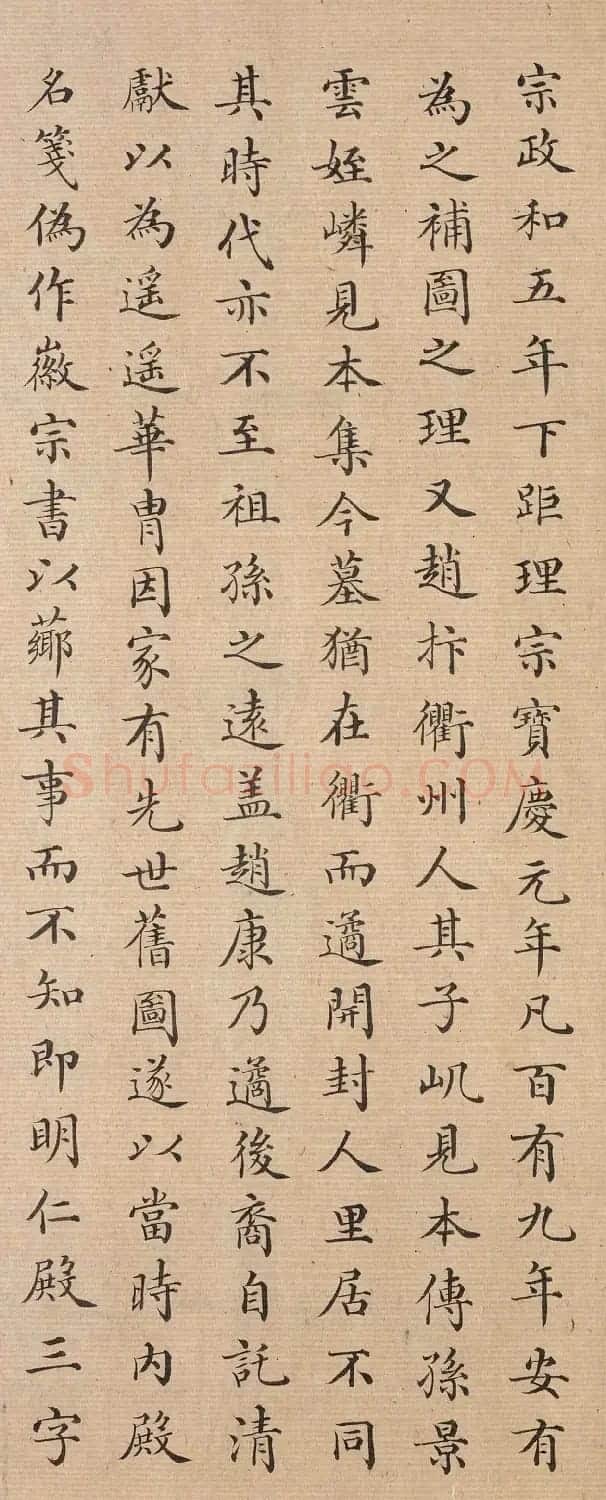 宗政和五年下距理宗寶慶元年凡百有九年安有
為之補圖之理又趙抃衢州人其子屼見本傳孫景
雲姪嶙見本集今墓猶在衢而遹開封人里居不同
其時代亦不至祖孫之遠盖趙康乃遹後裔自託清
獻以為遥遥華胄因家有先世舊圖遂以當時内殿
名箋偽作徽宗書以薌其事而不知即明仁殿三字
Shufaziliao.COM